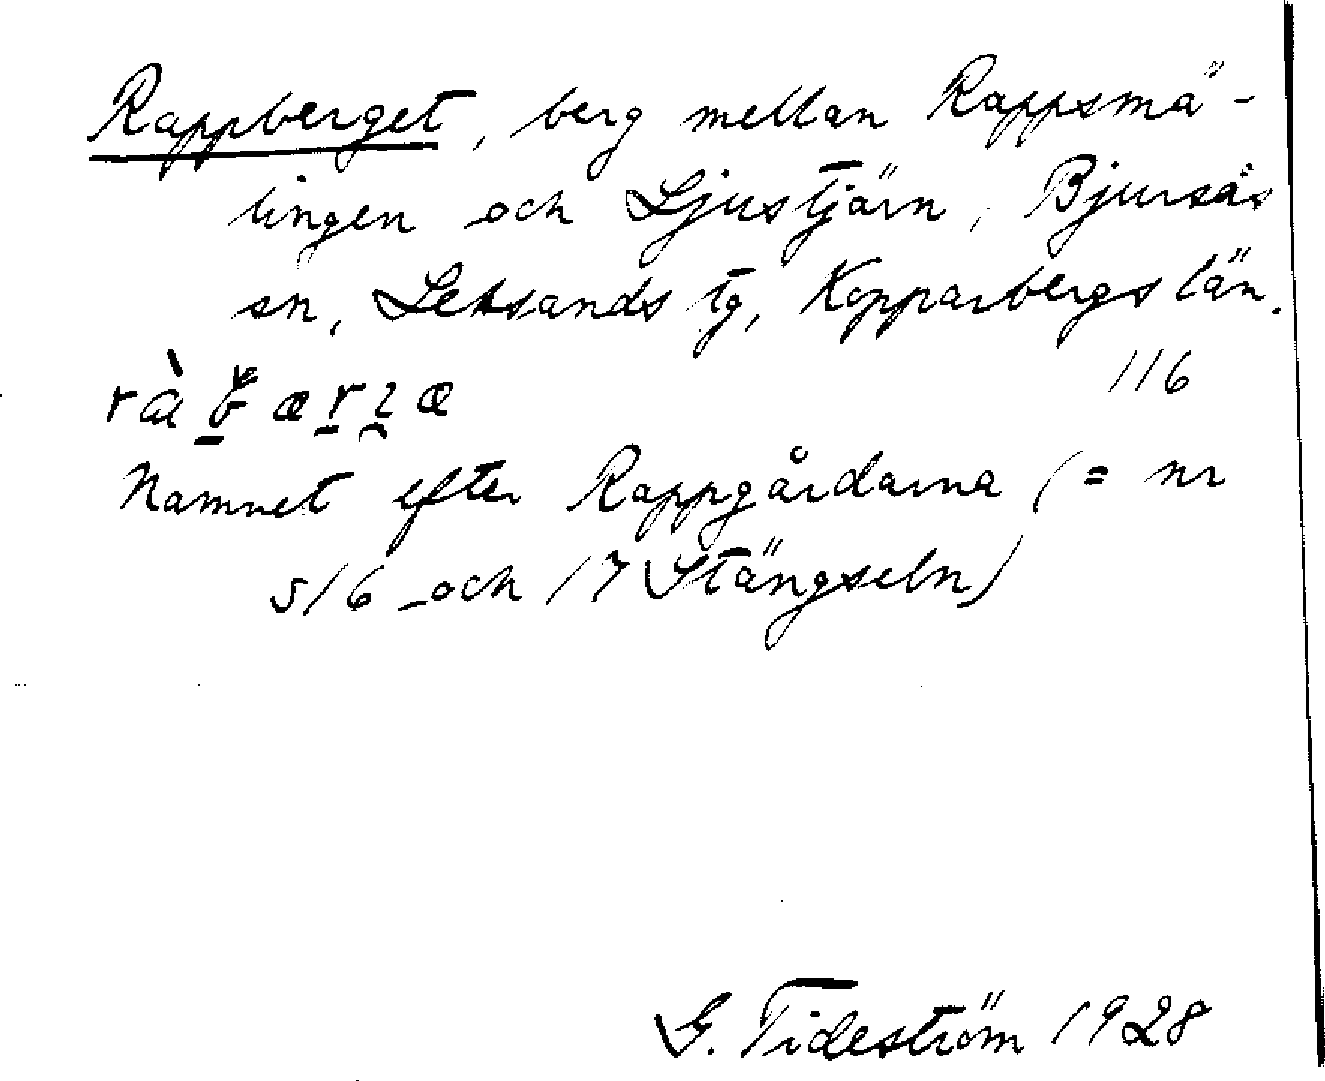 Rappberget, berg mellan Rappsmä-
lingen och Ljustjärn, Bjursås
sn, Leksands tg, Kopparbergs län.
116
Namnet efter Rappgårdarna (= nr
516 och 17 Stängseln)
G. Tideström 1928